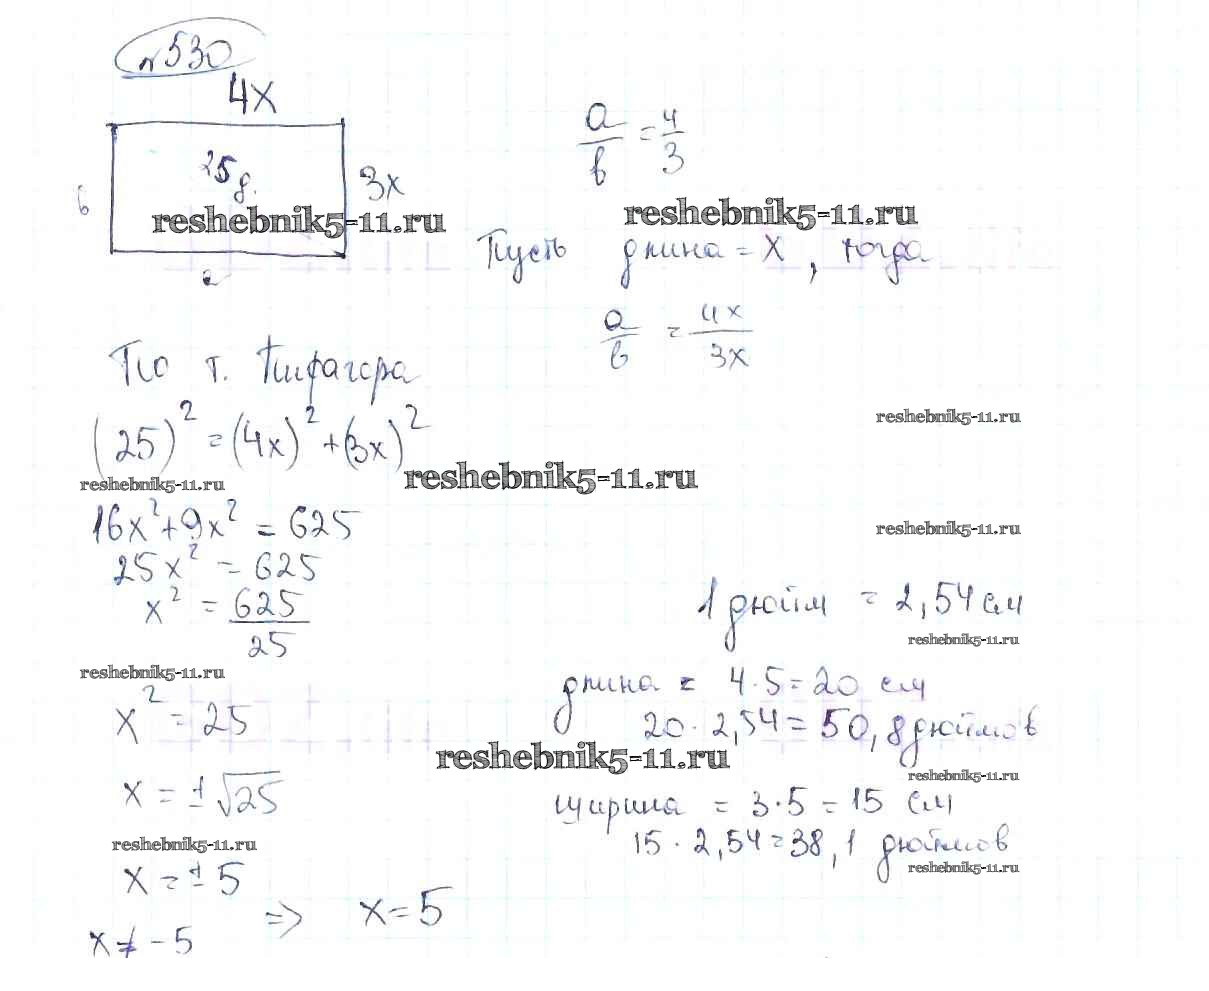 №530
4x
a/b = 4/3
25 д.
3x
в
reshebnik5-11.ru
reshebnik5-11.ru
Пусть длина = x, тогда
a
a/b = 4x/3x
По т. Пифагора
(25)² = (4x)² + (3x)²
reshebnik5-11.ru
reshebnik5-11.ru
reshebnik5-11.ru
16x² + 9x² = 625
reshebnik5-11.ru
25x² = 625
x² = 625/25
1 дюйм = 2,54 см
reshebnik5-11.ru
reshebnik5-11.ru
длина = 4·5 = 20 см
x² = 25
20·2,54 = 50,8 дюймов
reshebnik5-11.ru
reshebnik5-11.ru
x = ±√25
ширина = 3·5 = 15 см
reshebnik5-11.ru
15·2,54 = 38,1 дюймов
reshebnik5-11.ru
x = ±5
x ≠ -5 => x = 5